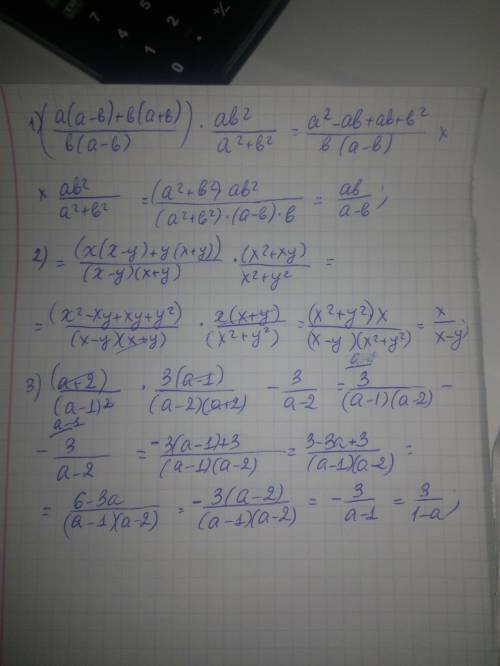 7 4 1 0 5 2 . +/-
1) ( (a(a-в)+в(a+в)) / (в(a-в)) ) · aв² / (a²+в²) = (a²-aв+aв+в²) / (в(a-в)) ×
× aв² / (a²+в²) = (a²+в²) aв² / ((a²+в²)·(a-в)·в) = aв / (a-в);
2) = (x(x-y)+y(x+y)) / ((x-y)(x+y)) · (x²+xy) / (x²+y²) =
= (x²-xy+xy+y²) / ((x-y)(x+y)) · x(x+y) / (x²+y²) = (x²+y²)x / ((x-y)(x²+y²)) = x / (x-y);
3) (a+2) / (a-1)² · 3(a-1) / ((a-2)(a+2)) - 3 / (a-2) = 3 / ((a-1)(a-2)) -
- 3 / (a-2) (a-1 = (-3(a-1)+3) / ((a-1)(a-2)) = (3-3a+3) / ((a-1)(a-2)) =
= (6-3a) / ((a-1)(a-2)) = -3(a-2) / ((a-1)(a-2)) = - 3 / (a-1) = 3 / (1-a);